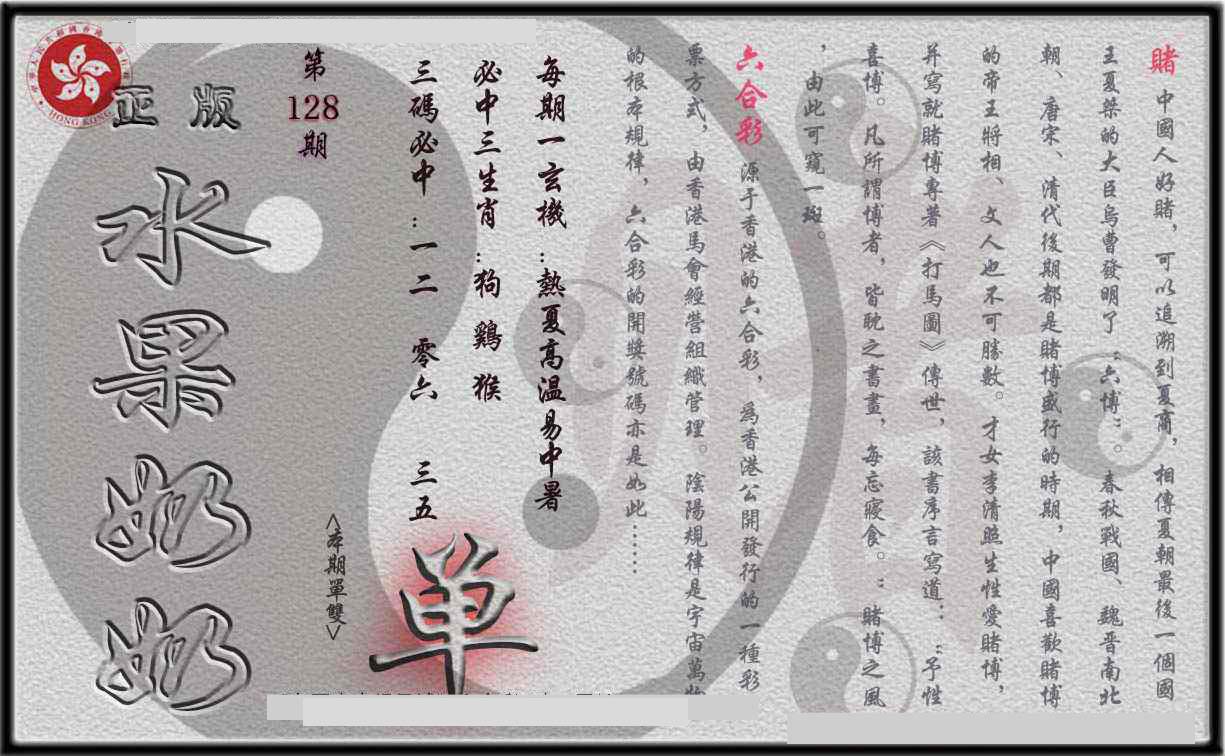 賭 中國人好賭，可以追溯到夏商，相傳夏朝最後一個國
王夏桀的大臣烏曹發明了“六博”。春秋戰國、魏晋南北
朝、唐宋、清代後期都是賭博盛行的時期，中國喜歡賭博
的帝王將相、文人也不可勝數。才女李清照生性愛賭博，
并寫就賭博專著《打馬圖》傳世，該書序言寫道：“予性
喜博。凡所謂博者，皆耽之書晝，每忘寢食。”賭博之風
，由此可窺一斑。
六合彩 源于香港的六合彩，爲香港公開發行的一種彩
票方式，由香港馬會經營組織管理。陰陽規律是宇宙萬物
的根本規律，六合彩的開獎號碼亦是如此……
每期一玄機：熱夏高温易中暑
必中三生肖：狗 鷄 猴
三碼必中：一二 零六 三五
單
<本期單雙>
第128期
正版
水果奶奶
HONG KONG